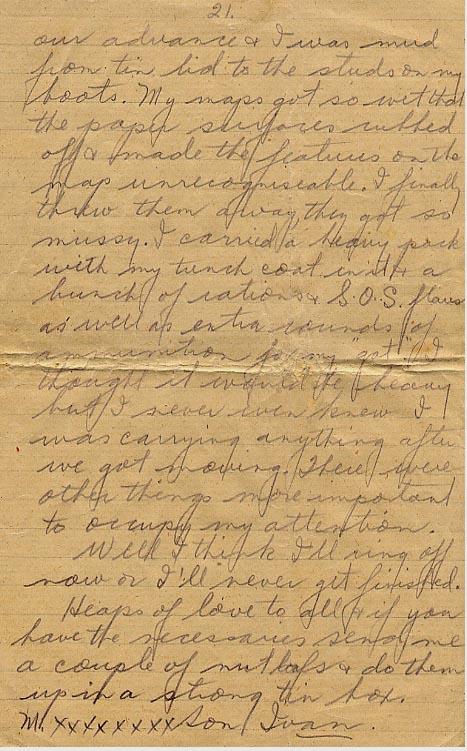 21.
our advance & I was mud
from tin lid to the studs on my
boots. My maps got so wet that
the paper surfaces rubbed
off & made the features on the
map unrecogniseable. I finally
threw them away, they got so
mussy. I carried a heavy pack
with my trench coat in it & a
bunch of rations & S.O.S. flares
as well as extra rounds of
ammunition for my "gat". I
thought it would be heavy
but I never even knew I
was carrying anything after
we got moving. There were
other things more important
to occupy my attention.
Well I think I'll ring off
now or I'll never get finished.
Heaps of love to all & if you
have the necessaries send me
a couple of nut loafs & do them
up in a strong tin box.
M. xxxxxxxx Son Ivan.